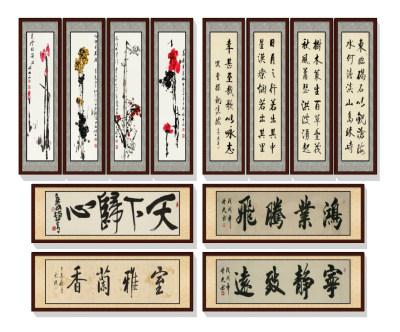 東臨碣石以觀滄海
水何澹澹山島竦峙
樹木叢生百草豐茂
秋風蕭瑟洪波涌起
日月之行若出其中
星漢燦爛若出其里
幸甚至哉歌以詠志
天下歸心
鴻業騰飛
室雅蘭香
寧靜致遠